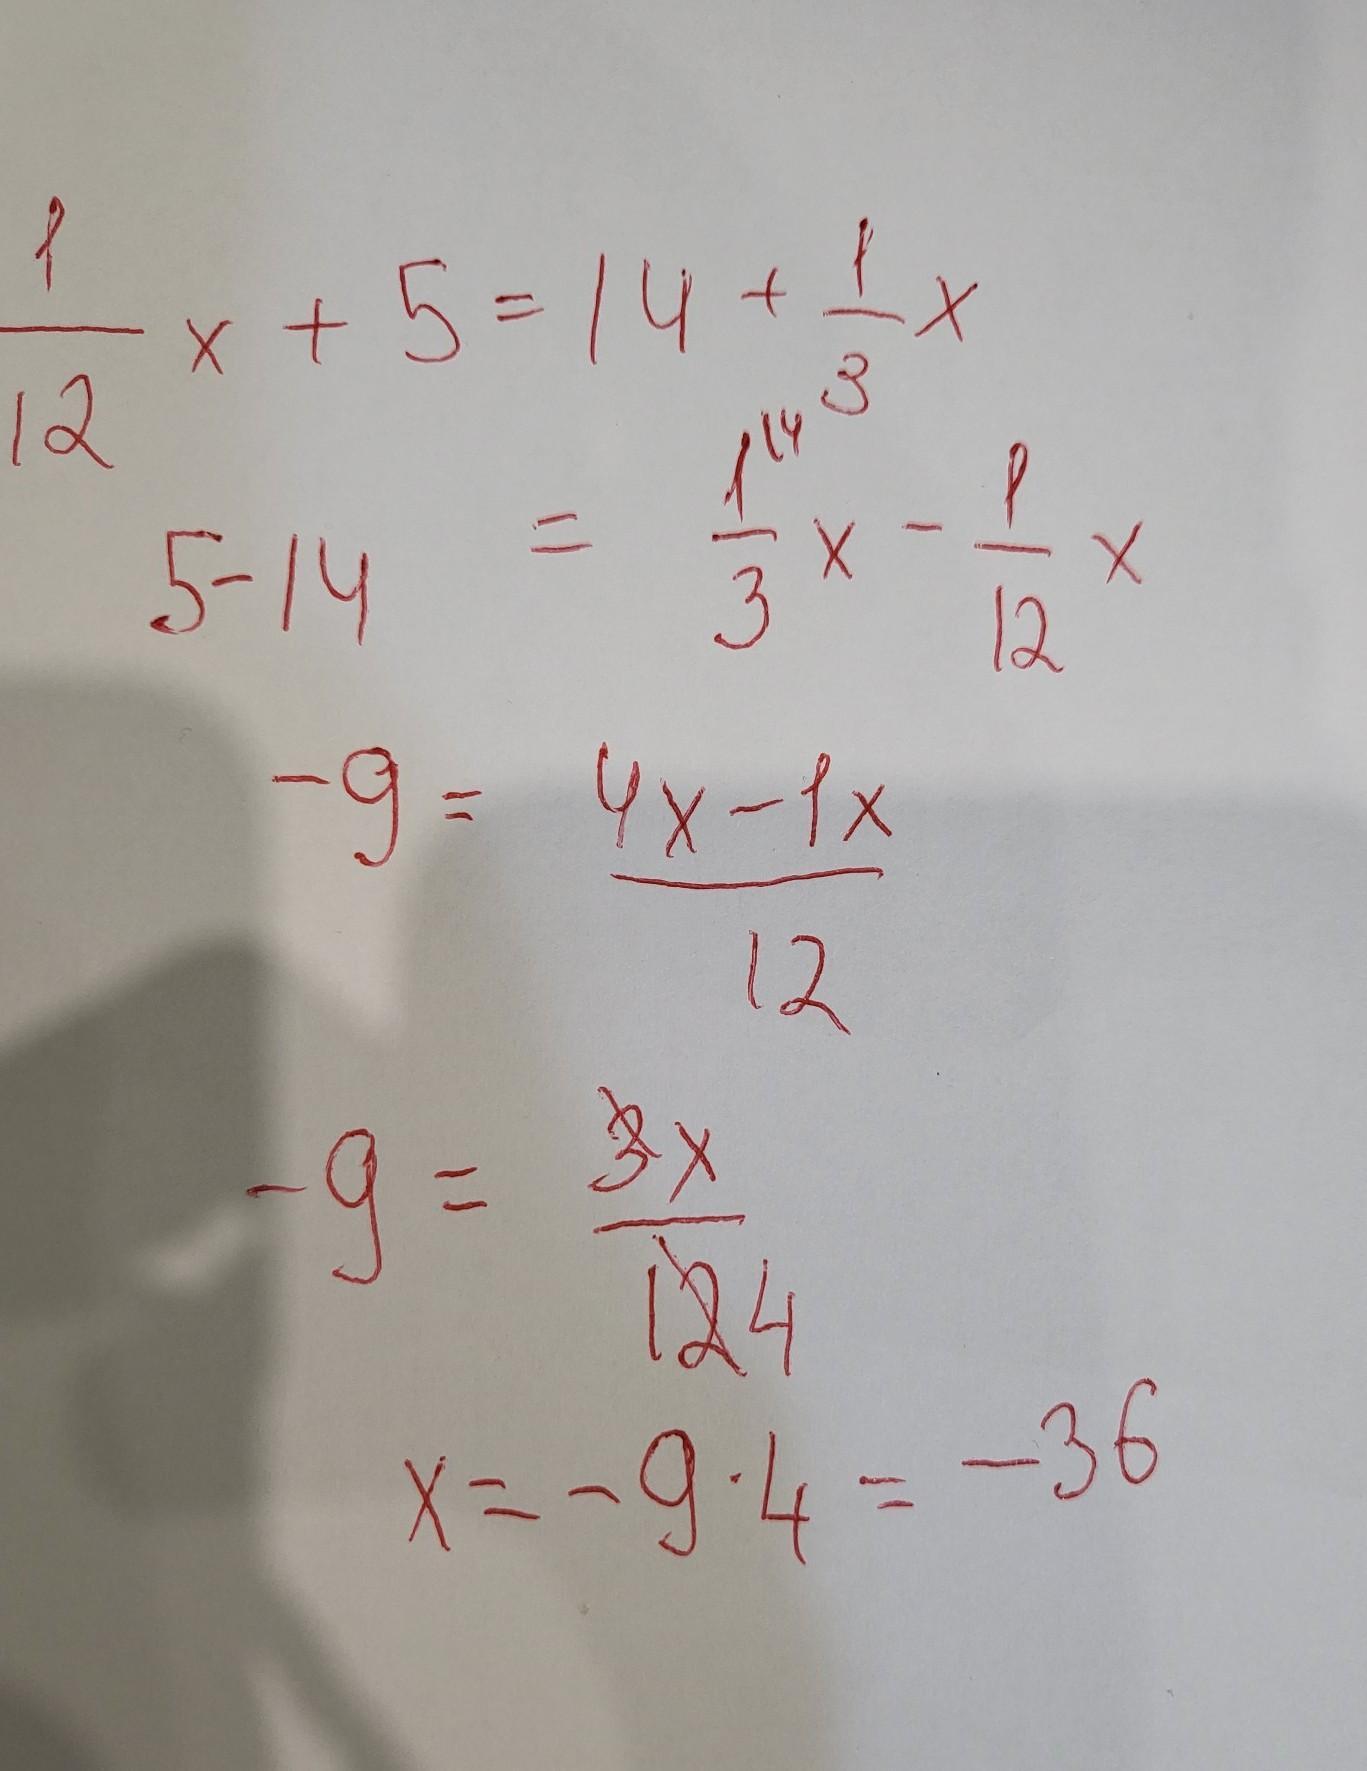 1/12 x + 5 = 14 + 1/3 x
5-14 = 1/3 ^14 x - 1/12 x
-9 = (4x-1x)/12
-9 = 3x/12 4
x = -9·4 = -36